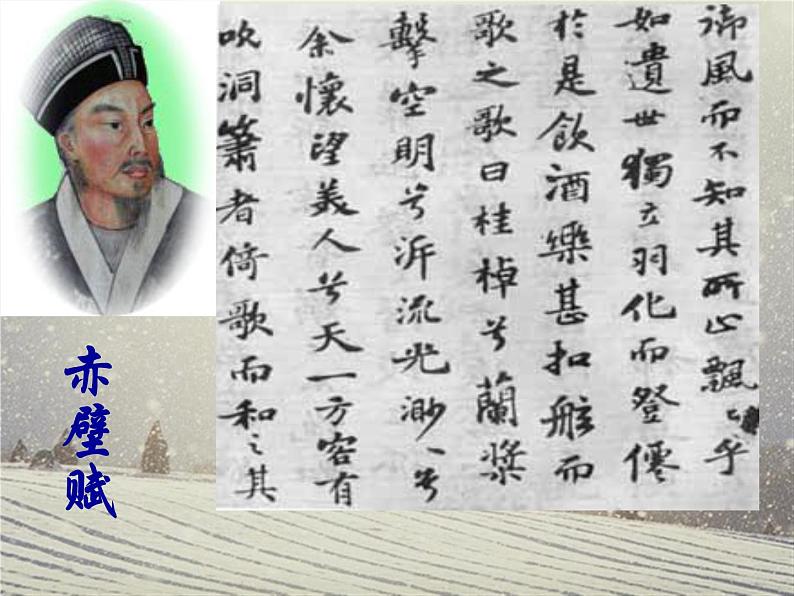 御風而不知其所止飄〻乎
如遺世獨立羽化而登僊
於是飲酒樂甚扣舷而
歌之歌曰桂棹兮蘭槳
擊空明兮泝流光渺〻兮
余懷望美人兮天一方客有
吹洞簫者倚歌而和之其
赤壁赋